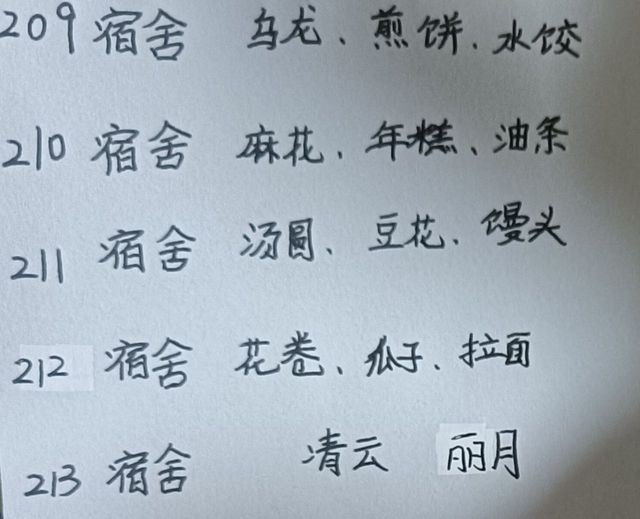 209 宿舍 乌龙、煎饼、水饺
210 宿舍 麻花、年糕、油条
211 宿舍 汤圆、豆花、馒头
212 宿舍 花卷、瓜子、拉面
213 宿舍 清云 丽月